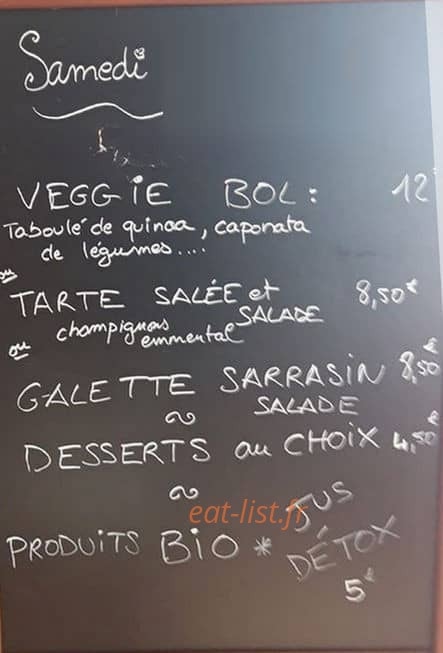 Samedi
VEGGIE BOL : 12
Taboulé de quinoa, caponata
de légumes....
ou
TARTE SALÉE et SALADE 8,50€
champignons emmental
ou
GALETTE SARRASIN 8,50€
SALADE
DESSERTS au CHOIX 4,50€
eat-list.fr
PRODUITS BIO * JUS
DÉTOX
5€